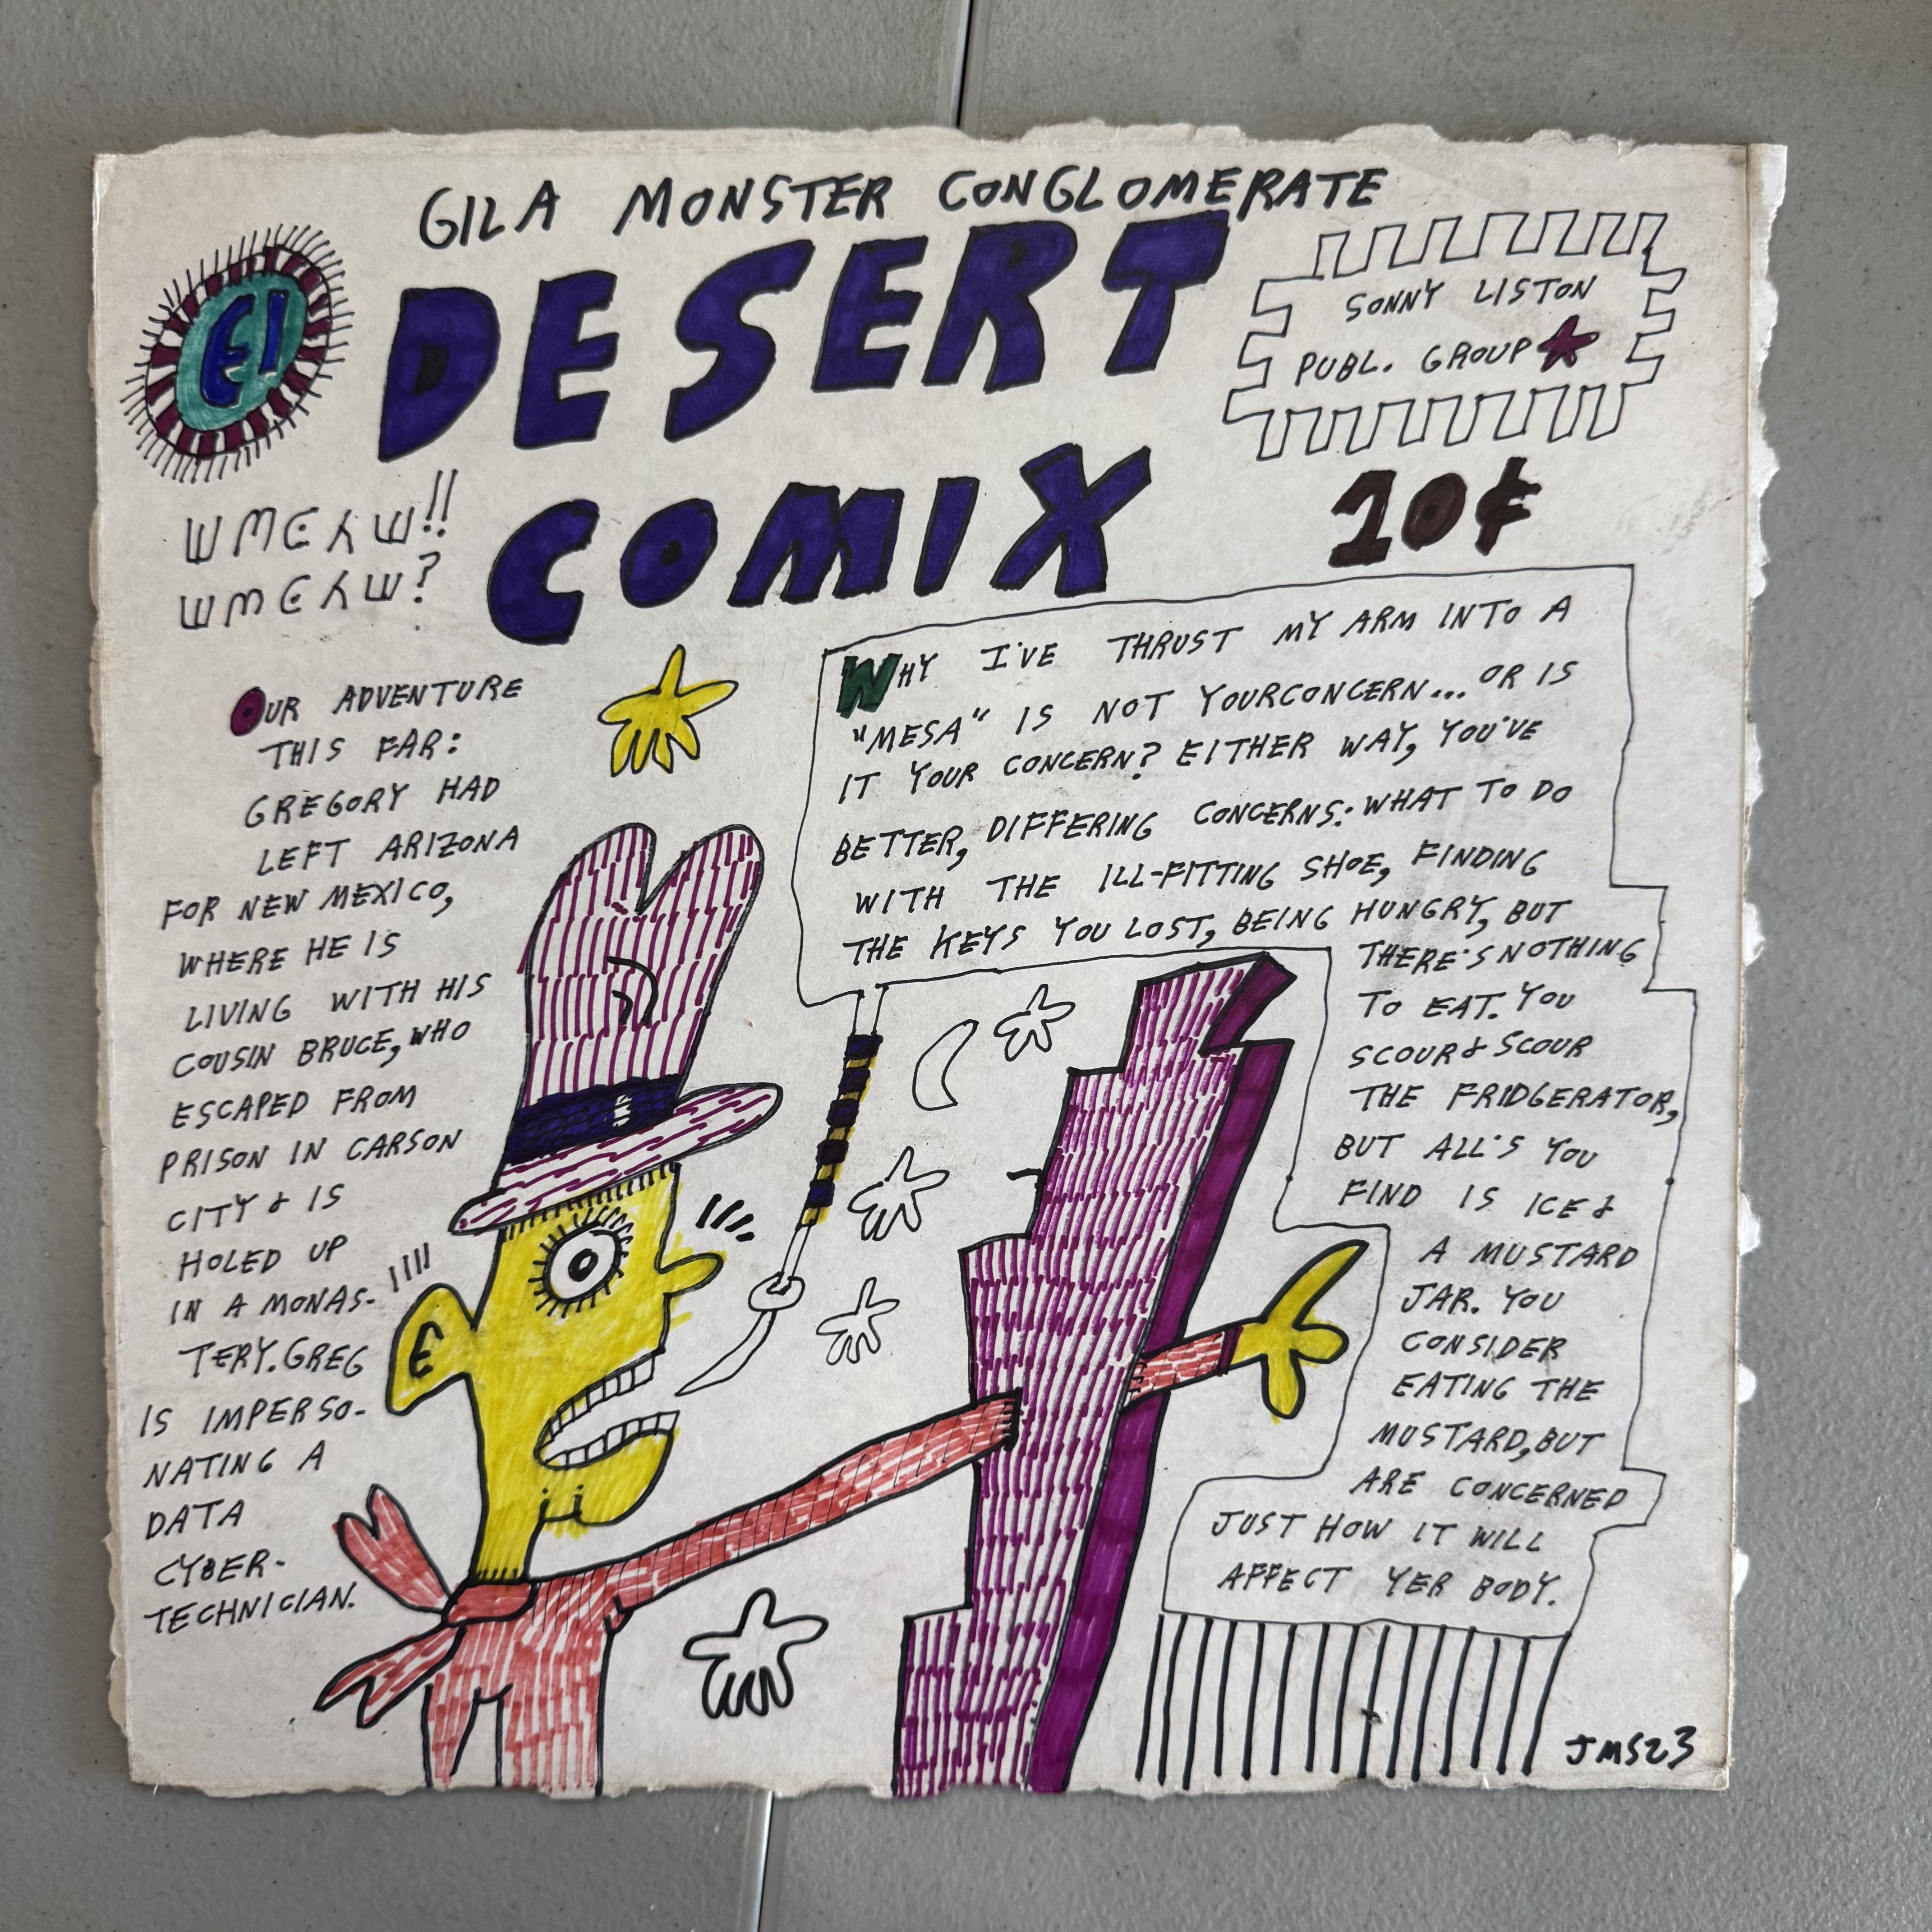 GILA MONSTER CONGLOMERATE
EI
DESERT
COMIX
SONNY LISTON
PUBL. GROUP
10¢
OUR ADVENTURE
THIS FAR:
GREGORY HAD
LEFT ARIZONA
FOR NEW MEXICO,
WHERE HE IS
LIVING WITH HIS
COUSIN BRUCE, WHO
ESCAPED FROM
PRISON IN CARSON
CITY & IS
HOLED UP
IN A MONAS-
TERY. GREG
IS IMPERSO-
NATING A
DATA
CYBER-
TECHNICIAN.
WHY I'VE THRUST MY ARM INTO A
"MESA" IS NOT YOURCONCERN... OR IS
IT YOUR CONCERN? EITHER WAY, YOU'VE
BETTER, DIFFERING CONCERNS: WHAT TO DO
WITH THE ILL-FITTING SHOE, FINDING
THE KEYS YOU LOST, BEING HUNGRY, BUT
THERE'S NOTHING
TO EAT. YOU
SCOUR & SCOUR
THE FRIDGERATOR,
BUT ALL'S YOU
FIND IS ICE &
A MUSTARD
JAR. YOU
CONSIDER
EATING THE
MUSTARD, BUT
ARE CONCERNED
JUST HOW IT WILL
AFFECT YER BODY.
JMS23